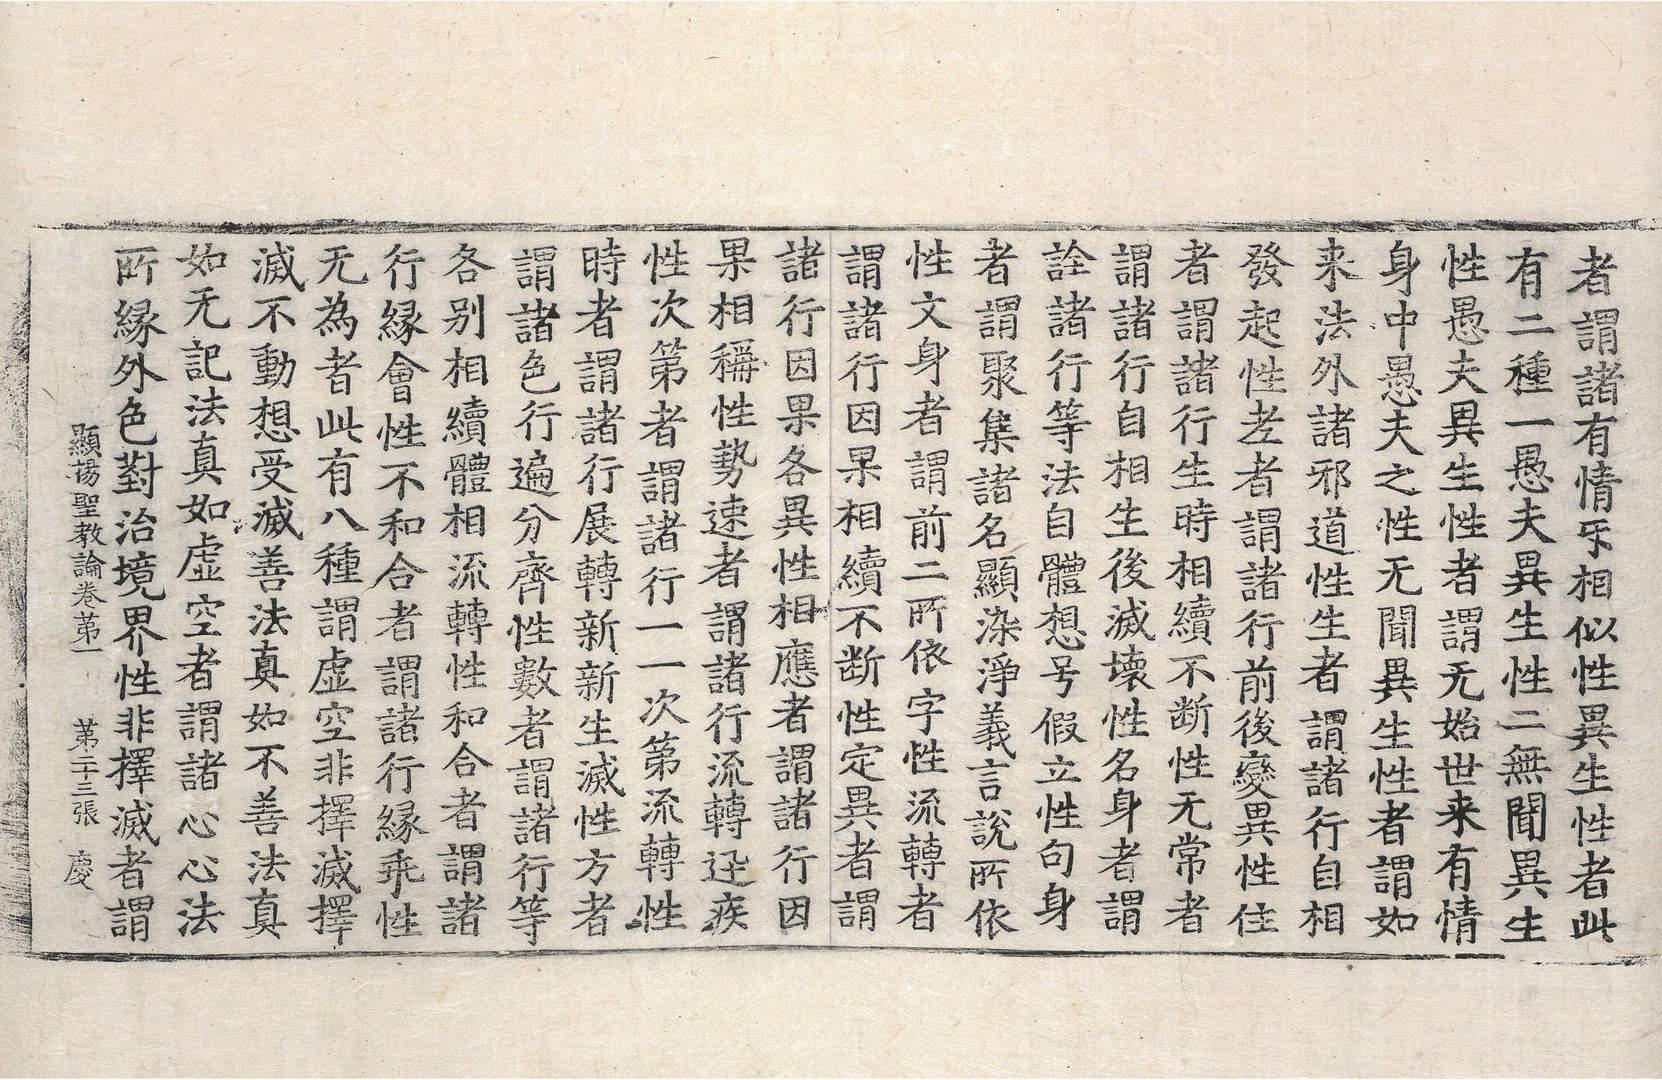 者謂諸有情互相似性異生性者此
有二種一愚夫異生性二無聞異生
性愚夫異生性者謂无始世来有情
身中愚夫之性无聞異生性者謂如
来法外諸邪道性生者謂諸行自相
發起性老者謂諸行前後變異性住
者謂諸行生時相續不断性无常者
謂諸行自相生後滅壞性名身者謂
詮諸行等法自體想号假立性句身
者謂聚集諸名顯染淨義言說所依
性文身者謂前二所依字性流轉者
謂諸行因果相續不断性定異者謂
諸行因果各異性相應者謂諸行因
果相稱性勢速者謂諸行流轉迅疾
性次第者謂諸行一一次第流轉性
時者謂諸行展轉新新生滅性方者
謂諸色行遍分齊性數者謂諸行等
各別相續體相流轉性和合者謂諸
行縁會性不和合者謂諸行縁乖性
无為者此有八種謂虛空非擇滅擇
滅不動想受滅善法真如不善法真
如无記法真如虛空者謂諸心心法
所縁外色對治境界性非擇滅者謂
顯揚聖教論卷苐一 苐二十三張 慶